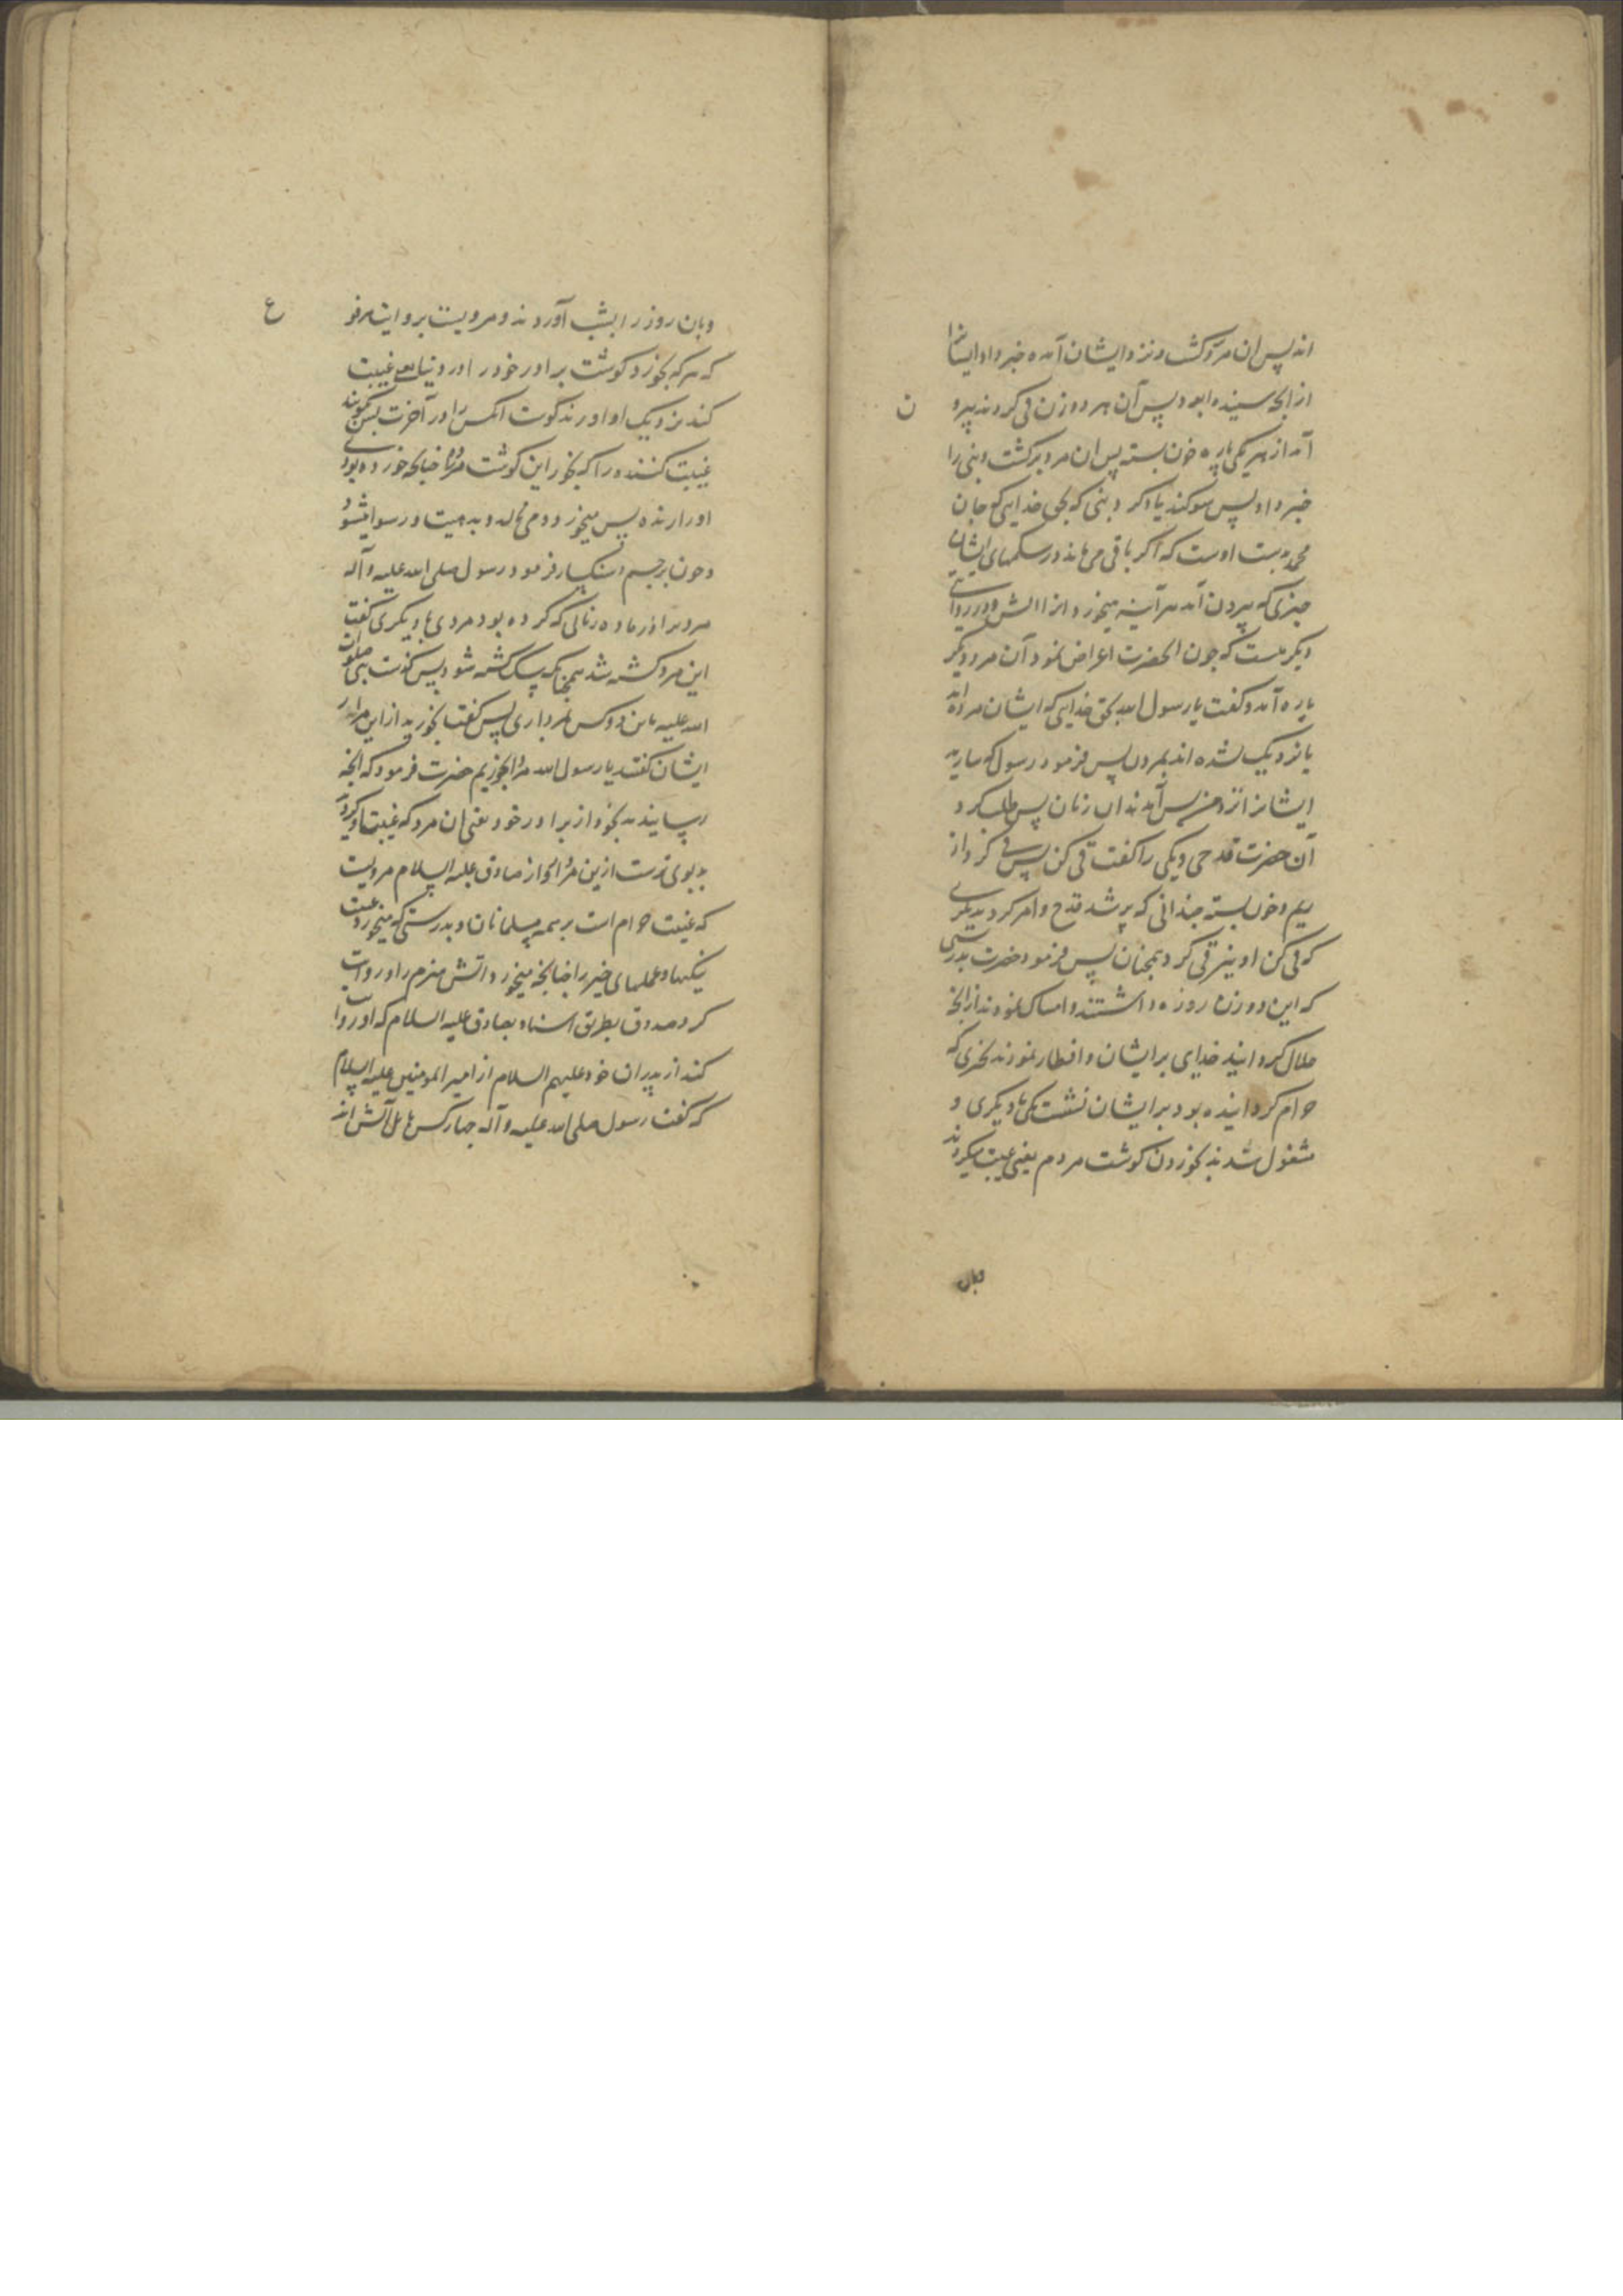 اند پس ان مرد کشت و نزد ایشان آمده خبر داد ایشانرا
از انچه شنیده بود پس آن هر دو زن قی کردند بیرو ن
آمد از هر یکی پاره خون بسته پس ان مرد برکشت و نبی را
خبر داد پس سوکند یاد کرد نبی که بحق خدایی که جان
محمد بدست اوست که اکر باقی می ماند در شکمهای ایشان
چیزی که بیرون آمد هر آینه میخورد انرا اتش و در روایتی
دیکر هست که چون انحضرت اعراض نمود آن مرد دیکر
باره آمد و کفت یا رسول الله بحق خدایی که ایشان مرده اند
یا نزدیک شده اند بمردن پس فرمود رسول که بیارید
ایشانرا نزد من پس آمدند ان زنان پس طلب کرد
آن حضرت قدحی و یکی را کفت قی کن پس قی کرد از
ریم و خون بسته چندانی که پر شد قدح و امر کرد بدیکری
که قی کن او نیز قی کرد همچنان پس فرمود حضرت بدرستی
که این دو زن روزه داشتند و امساک نمودند از انچه
حلال کردانید خدای برایشان و افطار نمودند بچیزی که
حرام کردانیده بود برایشان نشست یکی با دیکری و
مشغول شدند بخوردن کوشت مردم یعنی غیبت میکردند
وبان
وبان روز را بشب آوردند و مرویست بروایت مرفو ع
که هر که بخورد کوشت برادر خود را در دنیا یعنی غیبت
کند نزدیک او اورند کوشت انکس را در آخرت پس کویند
غیبت کننده را که بخور این کوشت مرده را چنانچه خورده بودی
او را زنده پس میخورد و می نالد و بدهیت و رسوا میشود
و چون برجم و سنکسار فرمود رسول صلی الله علیه و آله
مردیرا از ماده زنائی که کرده بود مردی با دیکری کفت
این مرد کشته شد همچنانکه سک کشته شود پس کذشت نبی صلوات
الله علیه باین دو کس بمرداری پس کفت بخورید از این مردار
ایشان کفتند یا رسول الله مردار بخوریم حضرت فرمود که انچه
رسانیدید بخود از برادر خود یعنی ان مرد که غیبت او کردید
بدبوی ترست ازین مردار و از صادق علیه السلام مرویست
که غیبت حرام است بر همه مسلمانان و بدرستی که میخورد غیبت
نیکیها و عملهای خیر را چنانچه میخورد اتش هیزم را و روایت
کرد صدوق بطریق اسناد بصادق علیه السلام که او روایت
کند از پدران خود علیهم السلام از امیر المومنین علیه السلام
که کفت رسول صلی الله علیه و آله چهار کس با اهل آتش اند